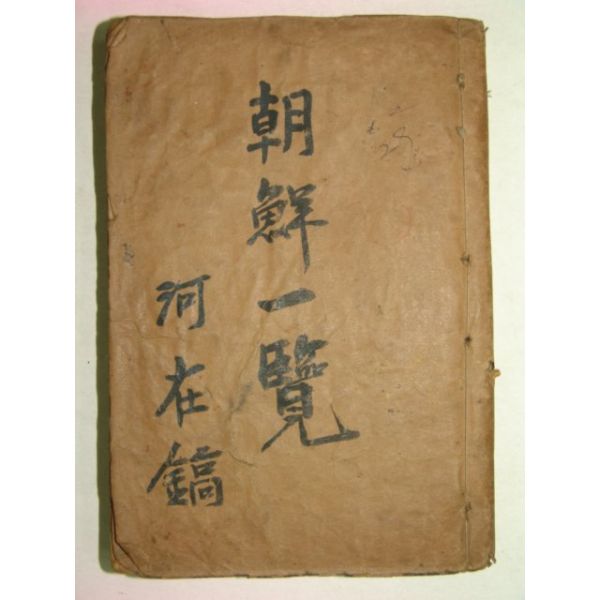 朝鮮一覽
河在鎬